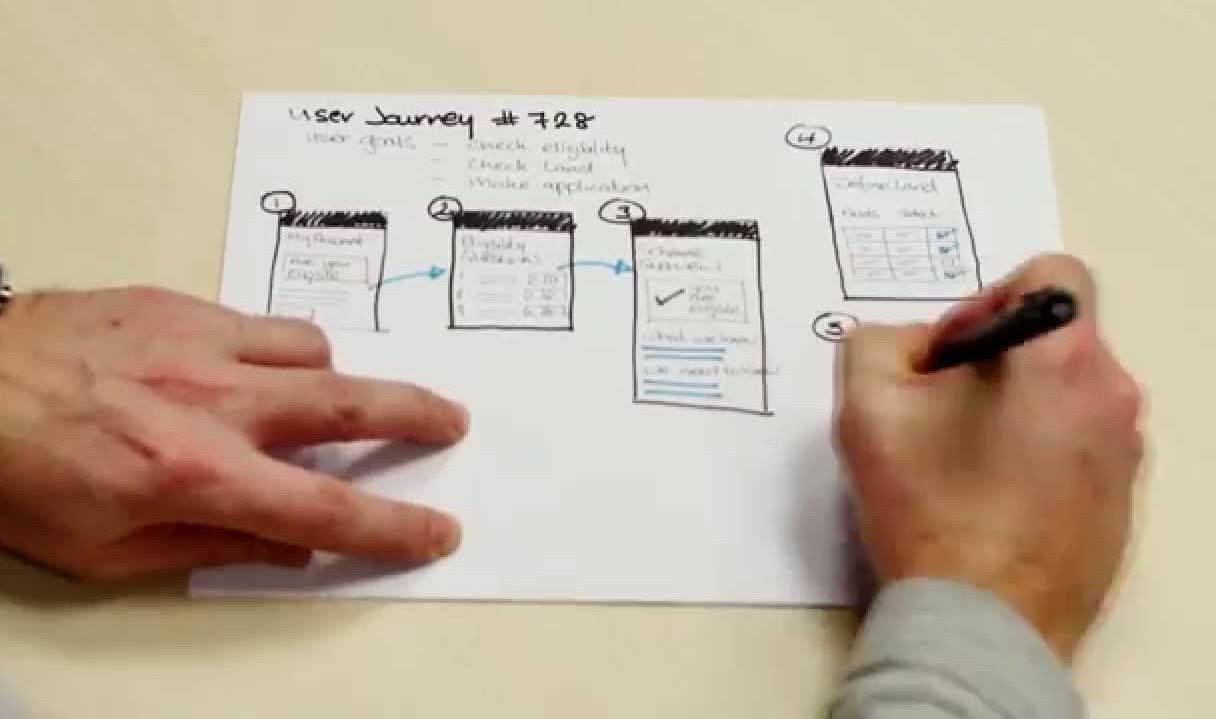 User Journey # 728
User goals - Check eligibility
- Check Land
- Make application
1
My Account
Are you
eligible
2
Eligibility
Questions
3
Choose
you
are
eligible
what we know
we need to know
4
Define Land
Fields Select
5